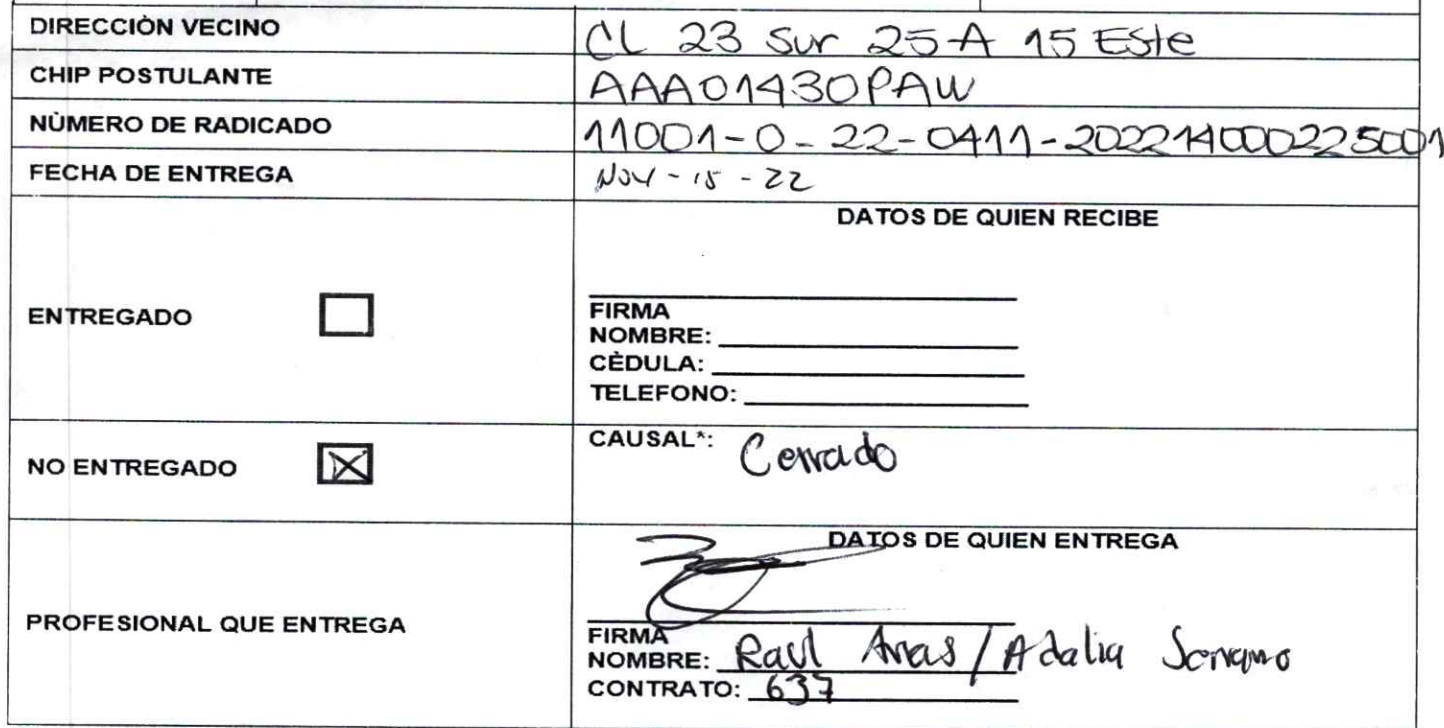 DIRECCIÒN VECINO CL 23 Sur 25A 15 Este
CHIP POSTULANTE AAA0143OPAW
NÙMERO DE RADICADO 11001-0-22-0411-202214000225001
FECHA DE ENTREGA Nov-15-22
DATOS DE QUIEN RECIBE
ENTREGADO
FIRMA
NOMBRE:
CÈDULA:
TELEFONO:
NO ENTREGADO CAUSAL*: Cerrado
DATOS DE QUIEN ENTREGA
PROFESIONAL QUE ENTREGA
FIRMA
NOMBRE: Raul Arias / Adalia Serrano
CONTRATO: 637